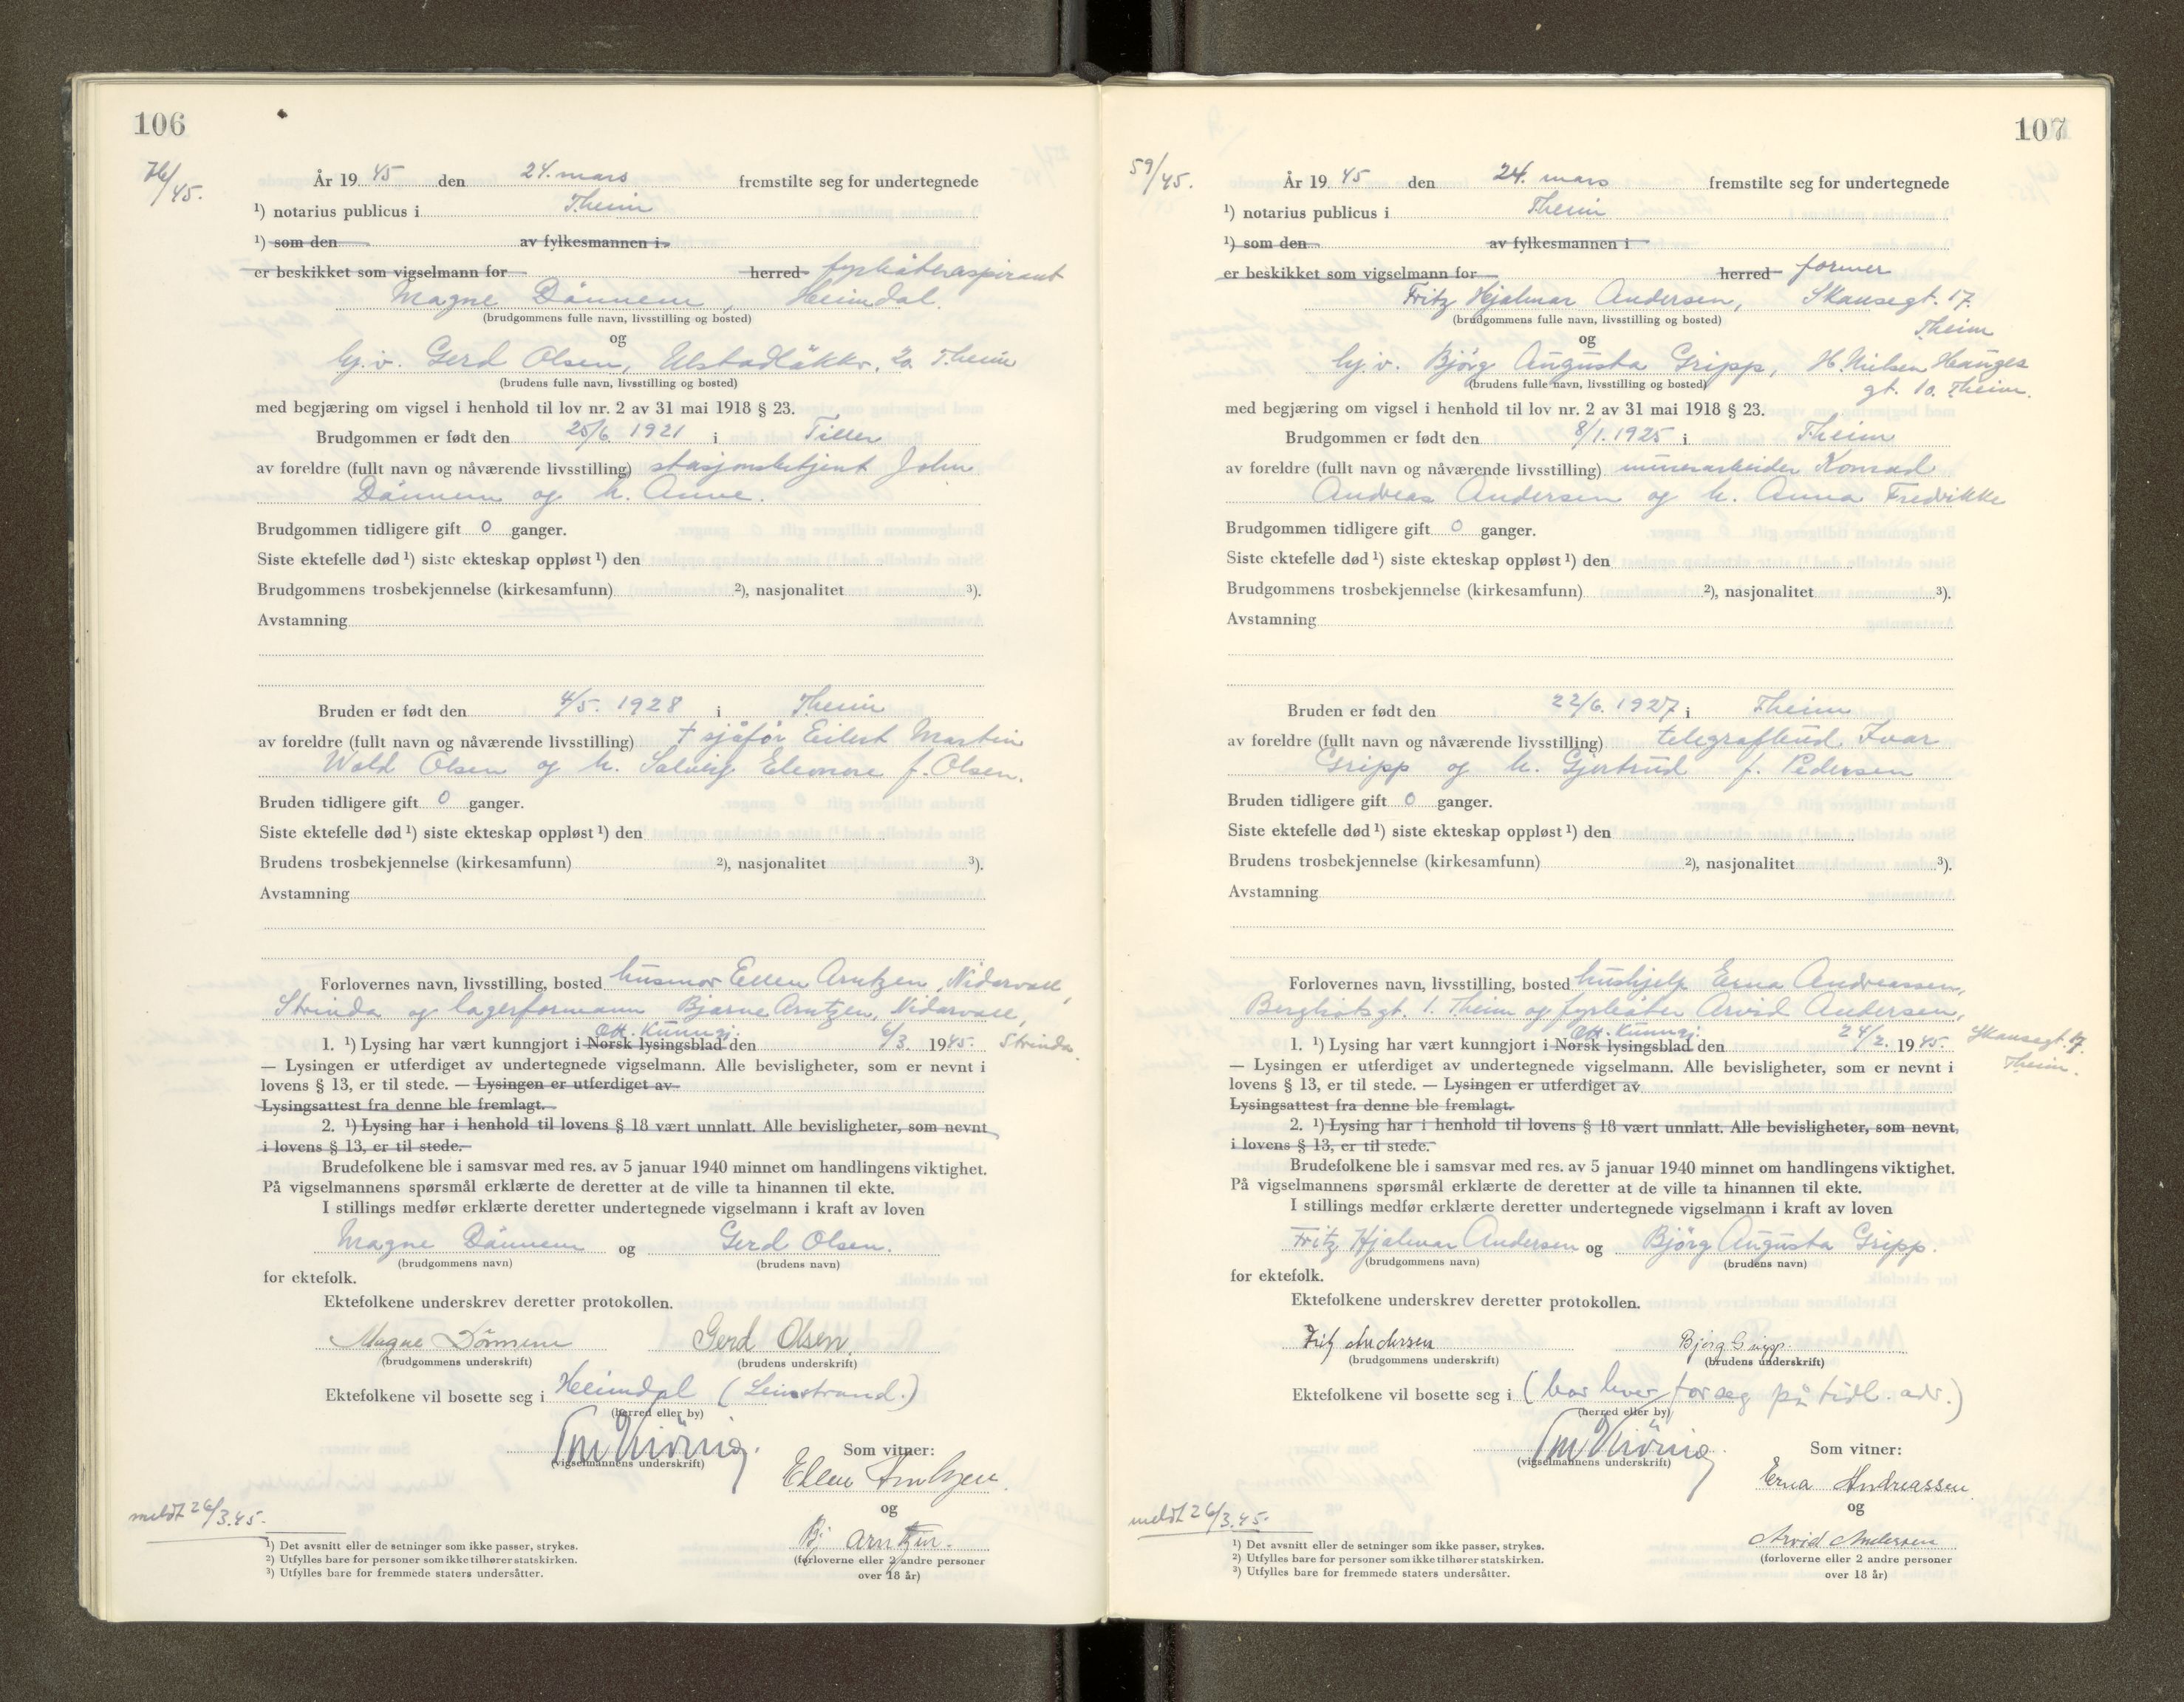 106
76/45.
År 19 45 den 24. mars fremstilte seg for undertegnede
¹) notarius publicus i Theim
¹) som den av fylkesmannen i
er beskikket som vigselmann for herred fyrbøteraspirant
Magne Dånnem, Heimdal.
(brudgommens fulle navn, livsstilling og bosted)
og
hj.v. Gerd Olsen, Ulstadløkkv. 2a Theim
(brudens fulle navn, livsstilling og bosted)
med begjæring om vigsel i henhold til lov nr. 2 av 31 mai 1918 § 23.
Brudgommen er født den 25/6 1921 i Tiller
av foreldre (fullt navn og nåværende livsstilling) stasjonsbetjent John
Dånnem og h. Anne.
Brudgommen tidligere gift 0 ganger.
Siste ektefelle død ¹) siste ekteskap oppløst ¹) den
Brudgommens trosbekjennelse (kirkesamfunn) ²), nasjonalitet ³).
Avstamning
Bruden er født den 4/5. 1928 i Theim
av foreldre (fullt navn og nåværende livsstilling) † sjåfør Eilert Martin
Wold Olsen og h. Solveig Eleonore f. Olsen.
Bruden tidligere gift 0 ganger.
Siste ektefelle død ¹) siste ekteskap oppløst ¹) den
Brudens trosbekjennelse (kirkesamfunn) ²), nasjonalitet ³).
Avstamning
Forlovernes navn, livsstilling, bosted husmor Ellen Arntzen, Nidarvoll,
Strinda og lagerformann Bjarne Arntzen, Nidarvoll,
Off. Kunngj.
1. ¹) Lysing har vært kunngjort i Norsk lysingsblad den 6/3. 1945. Strinda.
— Lysingen er utferdiget av undertegnede vigselmann. Alle bevisligheter, som er nevnt i
lovens § 13, er til stede. — Lysingen er utferdiget av
Lysingsattest fra denne ble fremlagt.
2. ¹) Lysing har i henhold til lovens § 18 vært unnlatt. Alle bevisligheter, som nevnt
i lovens § 13, er til stede.
Brudefolkene ble i samsvar med res. av 5 januar 1940 minnet om handlingens viktighet.
På vigselmannens spørsmål erklærte de deretter at de ville ta hinannen til ekte.
I stillings medfør erklærte deretter undertegnede vigselmann i kraft av loven
Magne Dånnem og Gerd Olsen.
(brudgommens navn) (brudens navn)
for ektefolk.
Ektefolkene underskrev deretter protokollen.
Magne Dönnem Gerd Olsen.
(brudgommens underskrift) (brudens underskrift)
Ektefolkene vil bosette seg i Heimdal (Leinstrand.)
(herred eller by)
(vigselmannens underskrift)
Som vitner:
Ellen Arntzen.
og
Bj Arntzen.
(forloverne eller 2 andre personer
over 18 år)
meldt 26/3.45.
¹) Det avsnitt eller de setninger som ikke passer, strykes.
²) Utfylles bare for personer som ikke tilhører statskirken.
³) Utfylles bare for fremmede staters undersåtter.
107
59/45.
År 19 45 den 24. mars fremstilte seg for undertegnede
¹) notarius publicus i Theim
¹) som den av fylkesmannen i
er beskikket som vigselmann for herred former
Fritz Hjalmar Andersen, Skansegt. 17.
(brudgommens fulle navn, livsstilling og bosted) Theim
og
hj.v. Bjørg Augusta Gripp, H. Nielsen Hauges
(brudens fulle navn, livsstilling og bosted) gt. 10. Theim.
med begjæring om vigsel i henhold til lov nr. 2 av 31 mai 1918 § 23.
Brudgommen er født den 8/1. 1925 i Theim
av foreldre (fullt navn og nåværende livsstilling) minearbeider Konrad
Andreas Andersen og h. Anna Fredrikke
Brudgommen tidligere gift 0 ganger.
Siste ektefelle død ¹) siste ekteskap oppløst ¹) den
Brudgommens trosbekjennelse (kirkesamfunn) ²), nasjonalitet ³).
Avstamning
Bruden er født den 22/6. 1927 i Theim
av foreldre (fullt navn og nåværende livsstilling) telegrafbud Ivar
Gripp og h. Gjertrud f. Pedersen
Bruden tidligere gift 0 ganger.
Siste ektefelle død ¹) siste ekteskap oppløst ¹) den
Brudens trosbekjennelse (kirkesamfunn) ²), nasjonalitet ³).
Avstamning
Forlovernes navn, livsstilling, bosted hushjelp Erna Andreassen,
Bergliotsgt. 1. Theim og fyrbøter Arvid Andersen,
Off. Kunngj.
1. ¹) Lysing har vært kunngjort i Norsk lysingsblad den 24/2. 1945. Skansegt. 17.
Theim.
— Lysingen er utferdiget av undertegnede vigselmann. Alle bevisligheter, som er nevnt i
lovens § 13, er til stede. — Lysingen er utferdiget av
Lysingsattest fra denne ble fremlagt.
2. ¹) Lysing har i henhold til lovens § 18 vært unnlatt. Alle bevisligheter, som nevnt,
i lovens § 13, er til stede.
Brudefolkene ble i samsvar med res. av 5 januar 1940 minnet om handlingens viktighet.
På vigselmannens spørsmål erklærte de deretter at de ville ta hinannen til ekte.
I stillings medfør erklærte deretter undertegnede vigselmann i kraft av loven
Fritz Hjalmar Andersen og Bjørg Augusta Gripp.
(brudgommens navn) (brudens navn)
for ektefolk.
Ektefolkene underskrev deretter protokollen.
Fritz Andersen Bjørg Gripp.
(brudgommens underskrift) (brudens underskrift)
Ektefolkene vil bosette seg i (bor hver for seg på tidl. adr.)
(herred eller by)
(vigselmannens underskrift)
Som vitner:
Erna Andreassen
og
Arvid Andersen
(forloverne eller 2 andre personer
over 18 år)
meldt 26/3.45.
¹) Det avsnitt eller de setninger som ikke passer, strykes.
²) Utfylles bare for personer som ikke tilhører statskirken.
³) Utfylles bare for fremmede staters undersåtter.